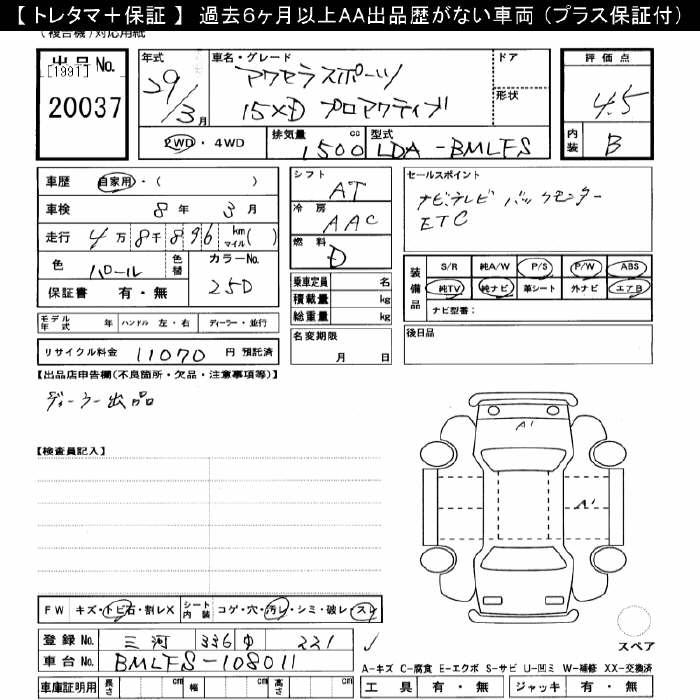 【 トレタマ＋保証 】 過去６ヶ月以上ＡＡ出品歴がない車両 (プラス保証付)
(複合機)対応用紙
出品No.
[1991]
20037
年式
29/3月
車名・グレード
アクセラスポーツ
15XD プロアクティブ
ドア
形状
評価点
4.5
内装
B
2WD ・ 4WD
排気量
1500 cc
型式
LDA-BMLFS
車歴 自家用・( )
車検 8年 3月
走行 4万8千896 km マイル( )
色 パール 色替 カラーNo.
25D
保証書 有・無
シフト
AT
冷房
AAC
燃料
D
セールスポイント
ナビテレビ バックモニター
ETC
装備品
S/R 純A/W P/S P/W ABS
純TV 純ナビ 革シート 外ナビ エアB
ナビ型番：
乗車定員 名
積載量 kg
総重量 kg
モデル年式 年 ハンドル 左・右 ディーラー・並行
名変期限
月 日
後日品
リサイクル料金 11070 円 預託済
【出品店申告欄(不良箇所・欠品・注意事項等)】
ディーラー出品
【検査員記入】
A1
A1
FW キズ・トビ石・割レX シート内装 コゲ・穴・汚レ・シミ・破レ・スレ
登録No. 三河 336 221
車台No. BMLFS-108011
スペア
A-キズ C-腐食 E-エクボ S-サビ U-凹ミ W-補修 XX-交換済
車庫証明用 長さ cm 幅 cm 高さ cm
工具 有・無 ジャッキ 有・無